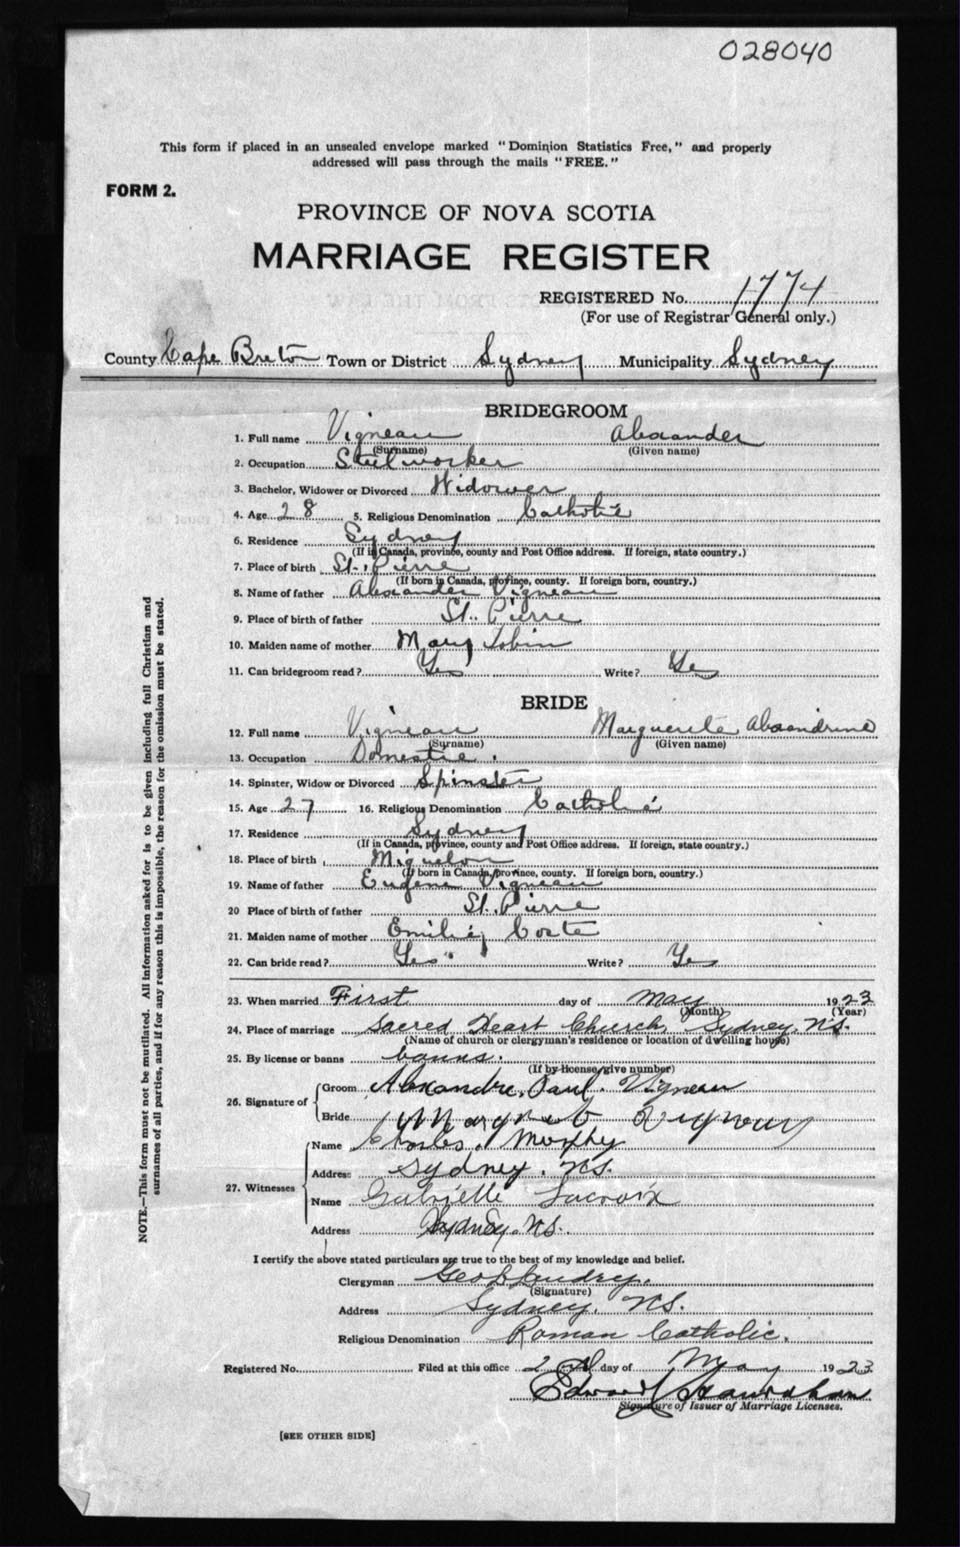 028040
This form if placed in an unsealed envelope marked "Dominion Statistics Free," and properly
addressed will pass through the mails "FREE."
FORM 2.
PROVINCE OF NOVA SCOTIA
MARRIAGE REGISTER
REGISTERED No. 1774
(For use of Registrar General only.)
County Cape Breton Town or District Sydney Municipality Sydney
BRIDEGROOM
1. Full name Vigneau Alexander
(Surname) (Given name)
2. Occupation Steelworker
3. Bachelor, Widower or Divorced Widower
4. Age 28 5. Religious Denomination Catholic
6. Residence Sydney
(If in Canada, province, county and Post Office address. If foreign, state country.)
7. Place of birth St. Pierre
(If born in Canada, province, county. If foreign born, country.)
8. Name of father Alexander Vigneau
9. Place of birth of father St. Pierre
10. Maiden name of mother Mary Tobin
11. Can bridegroom read? Yes Write? Yes
BRIDE
12. Full name Vigneau Marguerite Alexandrine
(Surname) (Given name)
13. Occupation Domestic.
14. Spinster, Widow or Divorced Spinster
15. Age 27 16. Religious Denomination Catholic
17. Residence Sydney
(If in Canada, province, county and Post Office address. If foreign, state country.)
18. Place of birth Miquelon
(If born in Canada, province, county. If foreign born, country.)
19. Name of father Eugene Vigneau
20 Place of birth of father St. Pierre
21. Maiden name of mother Emilie Coste
22. Can bride read? Yes Write? Yes
23. When married First day of May 1923
(Month) (Year)
24. Place of marriage Sacred Heart Church, Sydney, N.S.
(Name of church or clergyman's residence or location of dwelling house)
25. By license or banns banns.
(If by license, give number)
26. Signature of Groom Alexandre Paul Vigneau
Bride Margret Vigneau
27. Witnesses Name Charles Murphy
Address Sydney. N.S.
Name Gabrielle Lacroix
Address Sydney. N.S.
I certify the above stated particulars are true to the best of my knowledge and belief.
Clergyman Geo Landry.
(Signature)
Address Sydney. N.S.
Religious Denomination Roman Catholic.
Registered No. Filed at this office 2nd day of May 1923
Edward Hanrahan
Signature of Issuer of Marriage Licenses.
[SEE OTHER SIDE]
NOTE.—This form must not be mutilated. All information asked for is to be given including full Christian and
surnames of all parties, and if for any reason this is impossible, the reason for the omission must be stated.